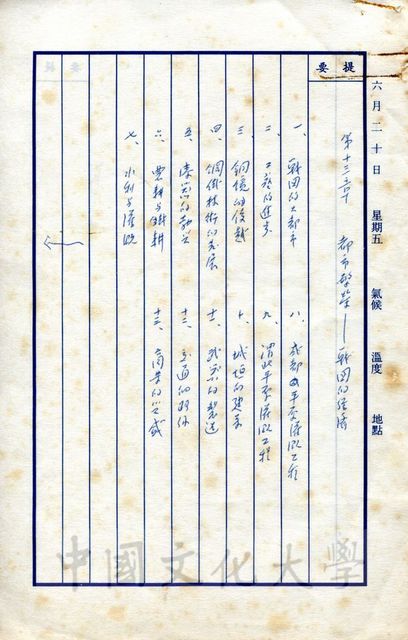 提要
六月二十日 星期五 氣候 溫度 地點
第十三章 都市繁榮──戰國的經濟
一、戰國的大都市
二、工藝的進步
三、銅鏡的優越
四、鋼鐵技術的發展
五、漆器的
六、農耕與
七、水利與灌溉
八、成都平原灌溉工程
九、渭北平原灌溉工程
十、城垣的建築
十一、武器的製造
十二、交通的
十三、商業的茂盛
中國文化大學